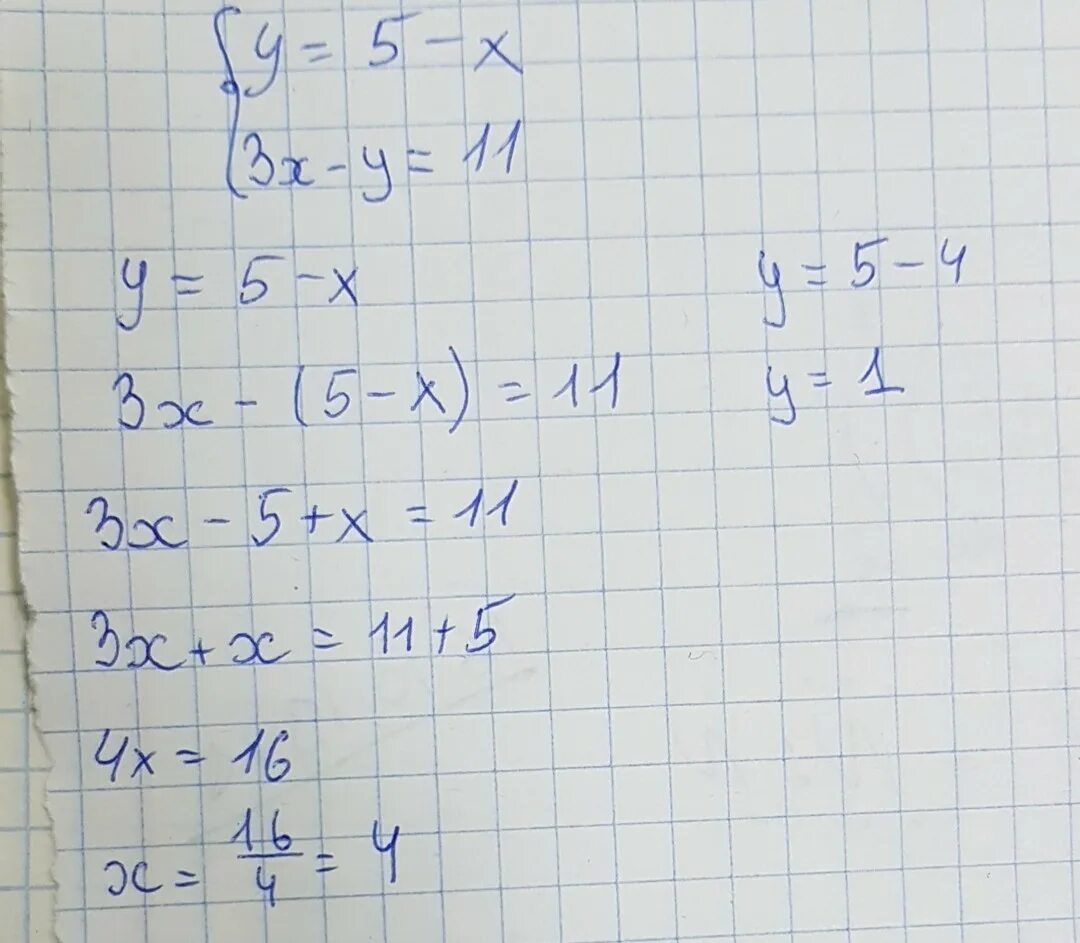 y = 5 - x
3x - y = 11
y = 5 - x
3x - (5 - x) = 11
3x - 5 + x = 11
3x + x = 11 + 5
4x = 16
x = 16/4 = 4
y = 5 - 4
y = 1